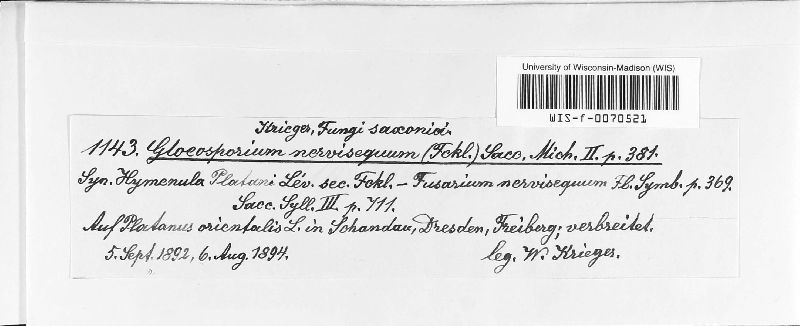 University of Wisconsin-Madison (WIS)
WIS-f-0070521
Krieger, Fungi saxonici.
1143. Gloeosporium nervisequum (Fckl.) Sacc. Mich. II. p. 381.
Syn. Hymenula Platani Lév. sec. Fckl. – Fusarium nervisequum Fl. Symb. p. 369.
Sacc. Syll. III. p. 711.
Auf Platanus orientalis L. in Schandau, Dresden, Freiberg; verbreitet.
5. Sept. 1892, 6. Aug. 1894. leg. W. Krieger.